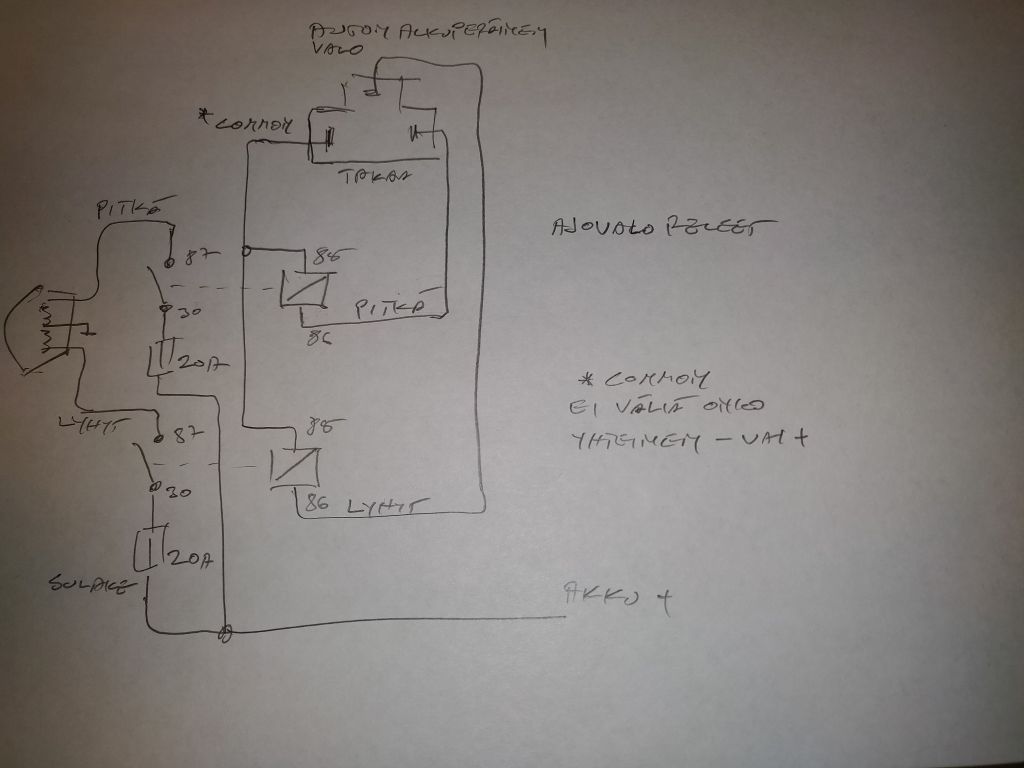 AUTON ALKUPERÄINEN
VALO
* COMMON
TAKAA
PITKÄ
AJOVALO RELEET
87
85
30
PITKÄ
86
20A
* COMMON
EI VÄLIÄ ONKO
YHTEINEN - VAI +
LYHYT
87
85
30
86
LYHYT
20A
SULAKE
AKKU +